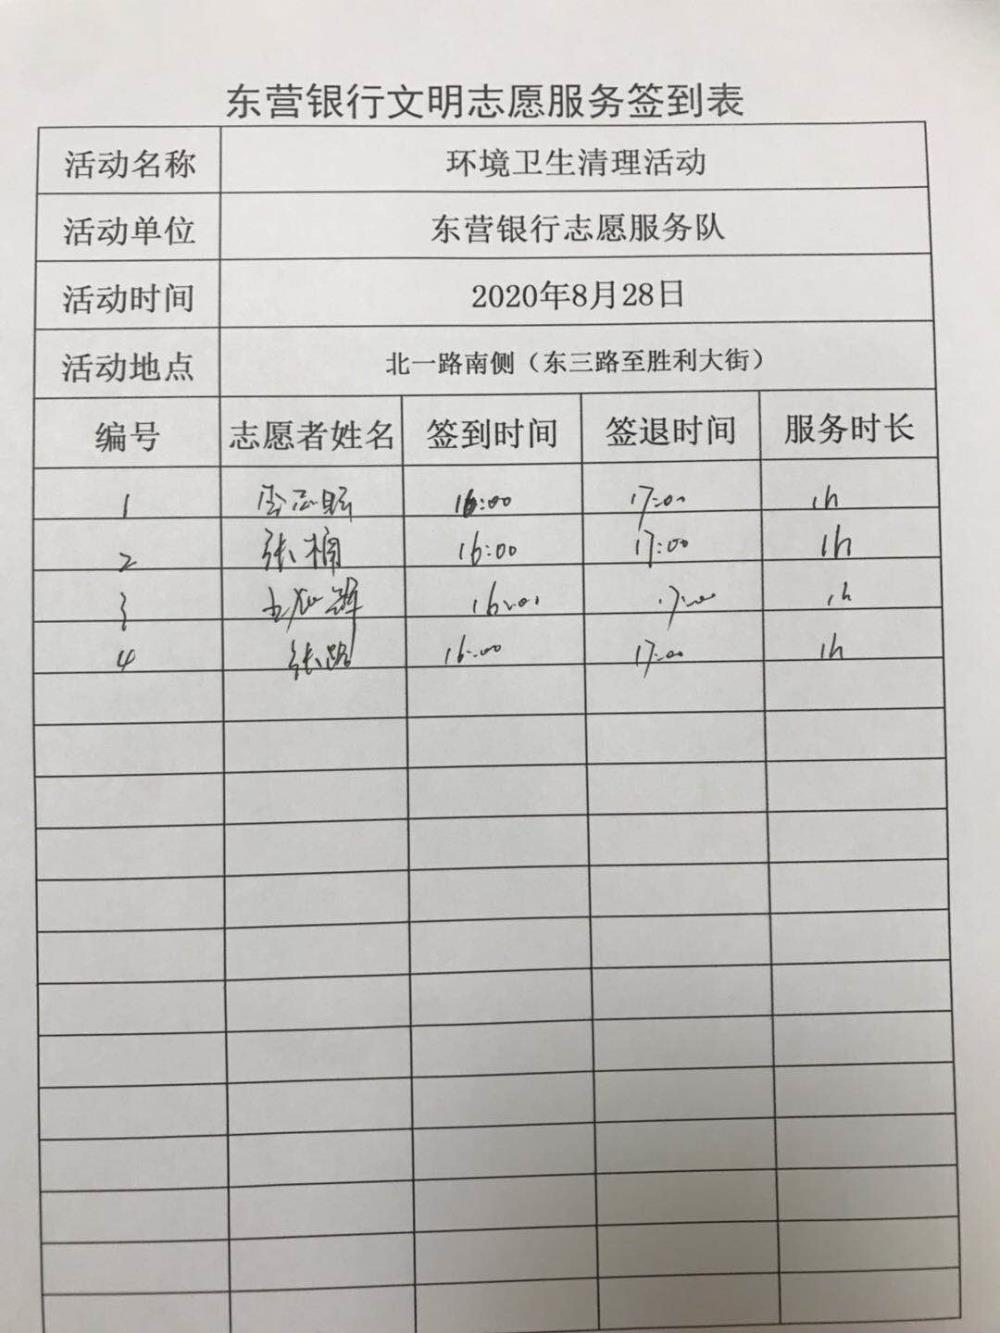 东营银行文明志愿服务签到表
活动名称 环境卫生清理活动
活动单位 东营银行志愿服务队
活动时间 2020年8月28日
活动地点 北一路南侧（东三路至胜利大街）
编号 志愿者姓名 签到时间 签退时间 服务时长
1 16:00 17:00 1h
2 张楠 16:00 17:00 1h
3 16:00 17:00 1h
4 张路 16:00 17:00 1h